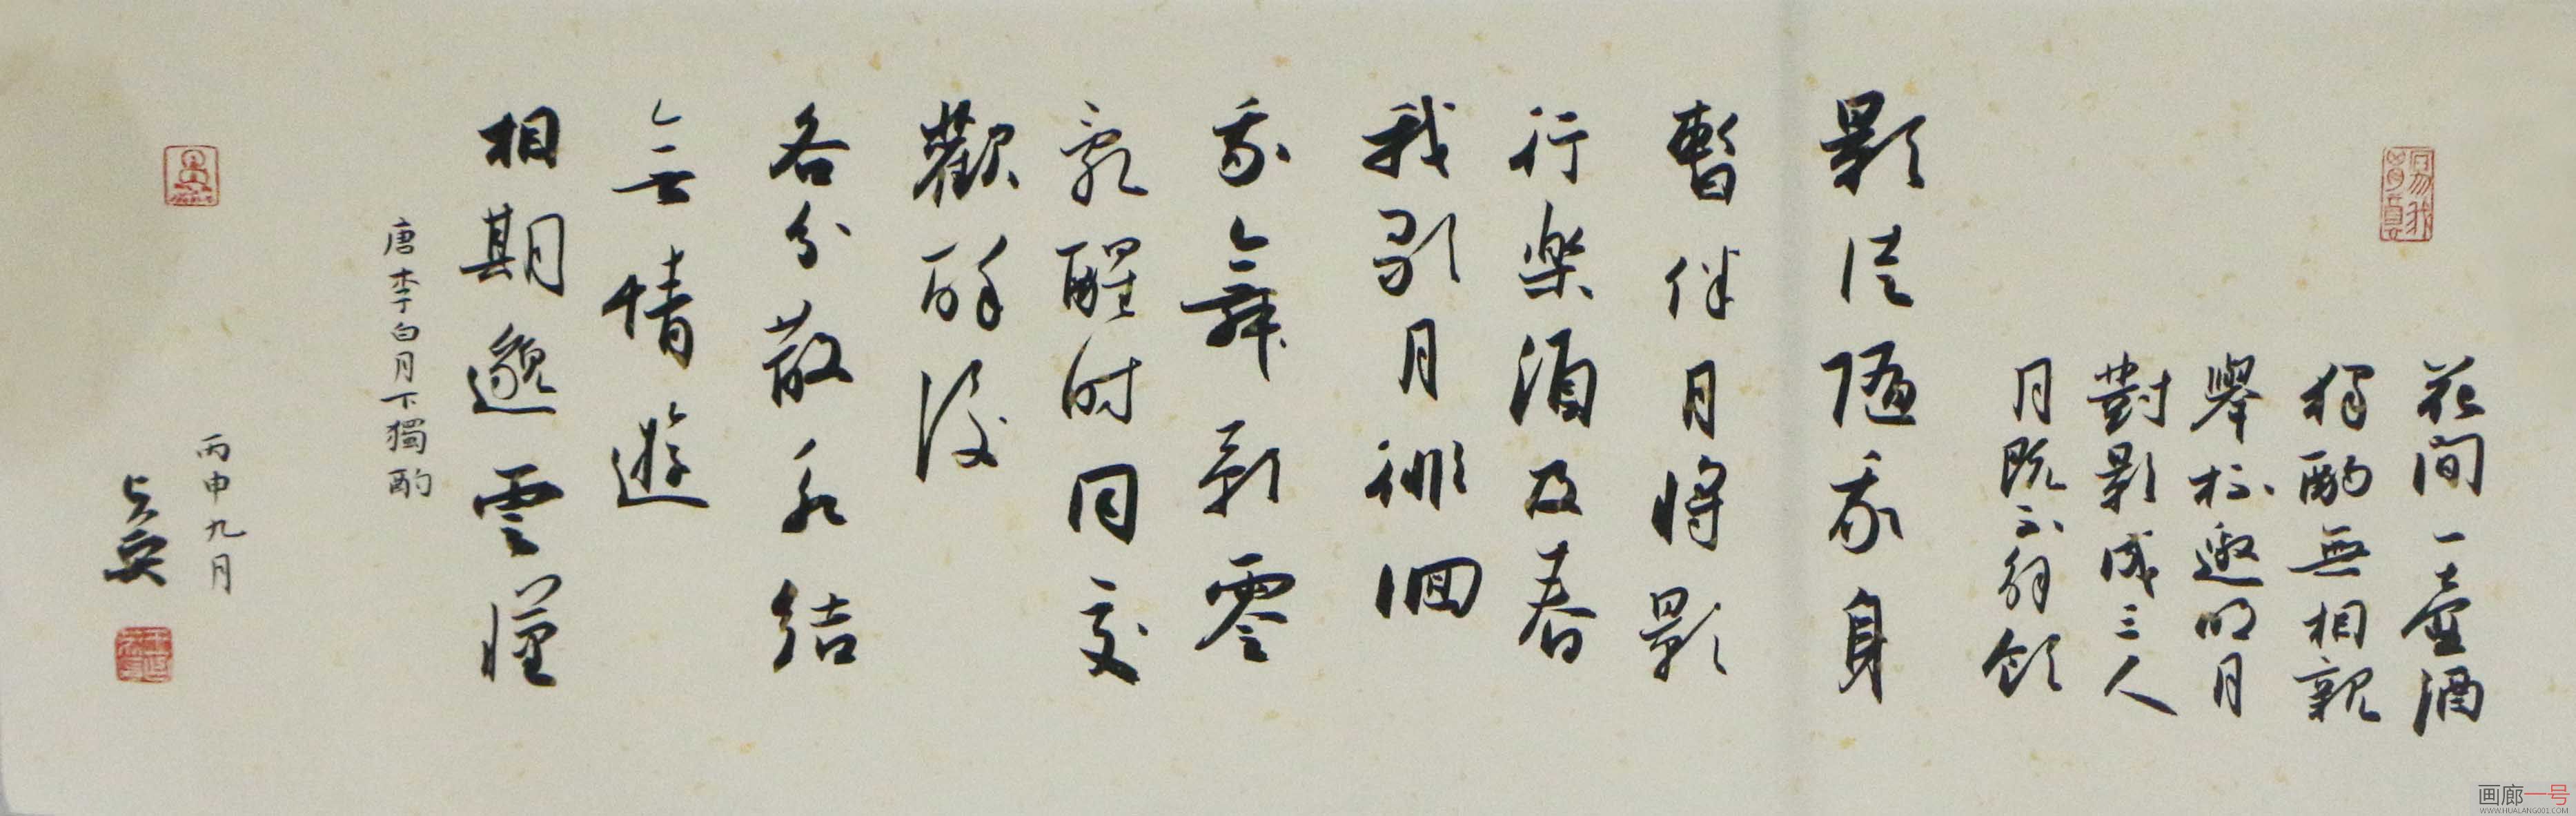 花間一壺酒
獨酌無相親
舉杯邀明月
對影成三人
月既不解飲
影徒隨我身
暫伴月將影
行楽須及春
我歌月徘徊
我舞影零
亂醒時同交
歡醉後
各分散永結
無情遊
相期邈雲漢
唐李白月下獨酌
丙申九月
画廊一号
WWW.HUALANG001.COM